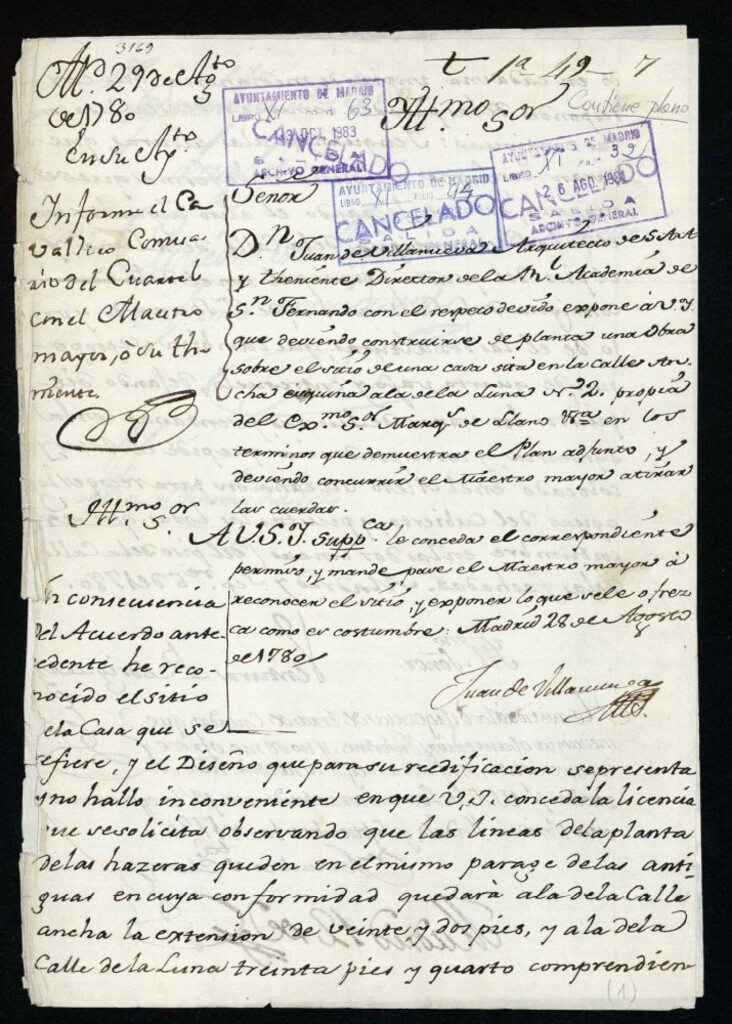 3169
Md. 29 de Agto
de 1780
En su Ayto
Informe el Ca
vallero Comisa-
rio del Cuartel
con el Maestro
mayor, ò su the
niente
t 1ª 49 7
Contiene plano
Yllmo Sor
AYUNTAMIENTO DE MADRID
LIBRO XI 63
3 OCT. 1983
CANCELADO
ARCHIVO GENERAL
AYUNTAMIENTO DE MADRID
LIBRO XI FOLIO 94
CANCELADO
SALIDA
GENERAL
AYUNTAMIENTO DE MADRID
LIBRO XI 39
26 AGO. 1981
CANCELADO
SALIDA
ARCHIVO GENERAL
Señor
Dn Juan de Villanueva Arquitecto de S.A.A.
y theniente Director de la Rl. Academia de
Sn Fernando con el respeto devido expone à V.Y.
que deviendo construirse de planta una obra
sobre el sitio de una casa sita en la Calle An-
cha esquina a la de la Luna Nº 2. propia
del Exmo Sor Marqs de Llano en los
terminos que demuestra el Plan adjunto, y
deviendo concurrir el Maestro mayor a tirar
las cuerdas.
A V.S.Y. suppca le conceda el correspondiente
permiso, y mande pase el Maestro mayor à
reconocer el sitio, y exponer lo que se le ofrez
ca como es costumbre: Madrid 28 de Agosto
de 1780
Juan de Villanueva
Yllmo Sor
En consecuencia
del Acuerdo ante-
cedente he reco-
nocido el sitio
de la Casa que se
refiere, y el Diseño que para su reedificacion se presenta
y no hallo inconveniente en que V.I. conceda la licencia
que se solicita observando que las lineas de la planta
de las hazeras queden en el mismo parage de las anti-
guas en cuya conformidad quedarà a la de la Calle
ancha la extension de veinte y dos pies, y a la de la
Calle de la Luna treinta pies y quarto comprendien
(1)